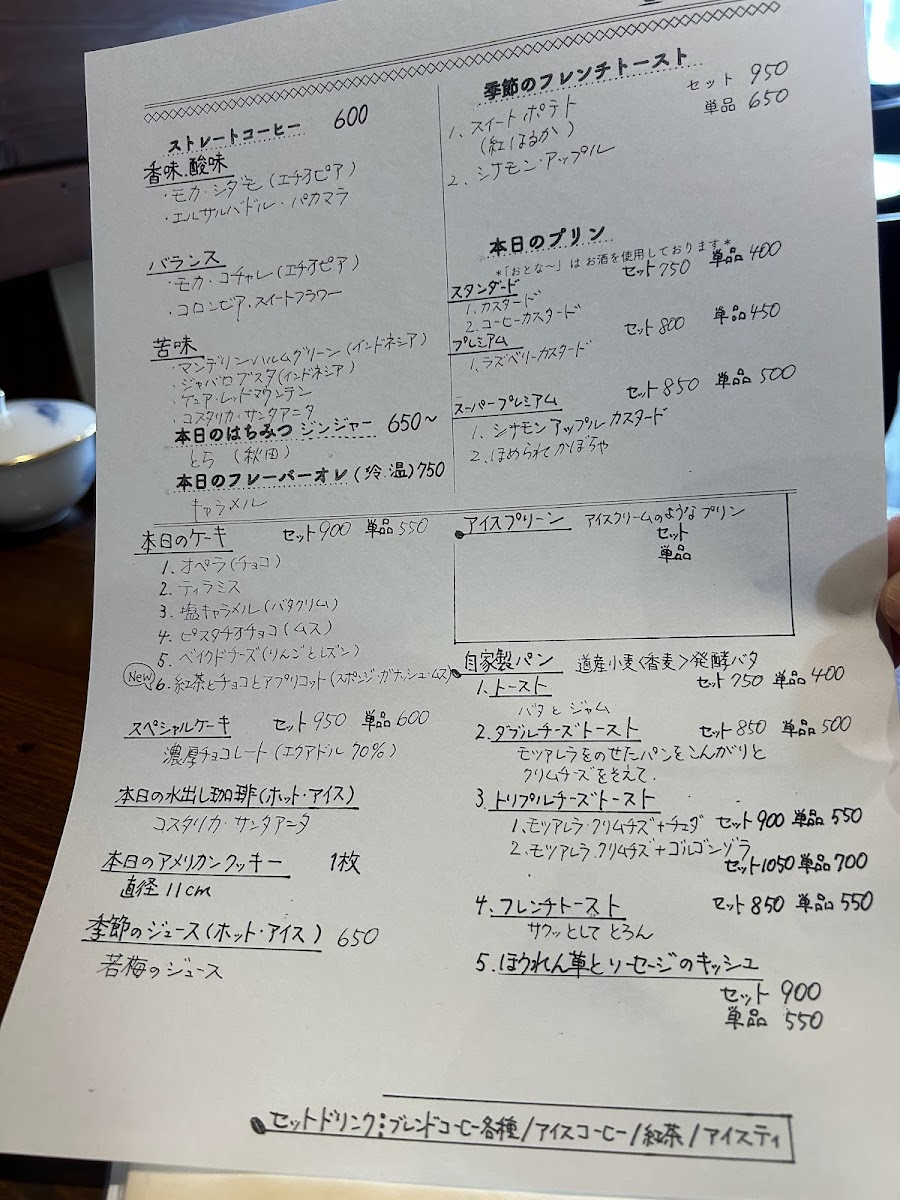 ストレートコーヒー 600
香味.酸味
・モカ・シダモ(エチオピア)
・エルサルバドル・パカマラ
バランス
・モカ・コチャレ(エチオピア)
・コロンビア・スイートフラワー
苦味
・マンデリン・ハルムグリーン(インドネシア)
・ジャバロブスタ(インドネシア)
・ケニア・レッドマウンテン
・コスタリカ・サンタアニタ
本日のはちみつ ジンジャー 650~
とち (秋田)
本日のフレーバーオレ(冷.温)750
キャラメル
季節のフレンチトースト
セット 950
単品 650
1. スイートポテト
(紅はるか)
2. シナモン・アップル
本日のプリン
*「おとな〜」は お酒を使用しております*
スタンダード セット750 単品400
1. カスタード
2. コーヒーカスタード
プレミアム セット800 単品450
1. ラズベリーカスタード
スーパープレミアム セット850 単品500
1. シナモンアップルカスタード
2. ほめられてかぼちゃ
本日のケーキ セット900 単品550
1. オペラ(チョコ)
2. ティラミス
3. 塩キャラメル(バタクリム)
4. ピスタチオチョコ(ムス)
5. ベイクドチーズ(りんごとレズン)
New 6. 紅茶とチョコとアプリコット(スポンジ・ガナッシュ・ムス)
スペシャルケーキ セット950 単品600
濃厚チョコレート(エクアドル70%)
本日の水出し珈琲(ホット・アイス)
コスタリカ・サンタアニタ
本日のアメリカンクッキー 1枚
直径11cm
季節のジュース(ホット・アイス) 650
若梅のジュース
アイスプリーン アイスクリームのようなプリン
セット
単品
自家製パン 道産小麦<香麦>発酵バタ
1. トースト セット750 単品400
バタとジャム
2. ダブルチーズトースト セット850 単品500
モツアレラをのせたパンをこんがりと
クリムチーズをそえて.
3. トリプルチーズトースト
1. モツアレラ・クリムチズ+チェダ セット900 単品550
2. モツアレラ.クリムチズ+ゴルゴンゾラ
セット1050 単品700
4. フレンチトースト セット850 単品550
サクッとして とろん
5. ほうれん草とソーセージのキッシュ
セット 900
単品 550
セットドリンク:ブレンドコーヒー各種/アイスコーヒー/紅茶/アイスティ